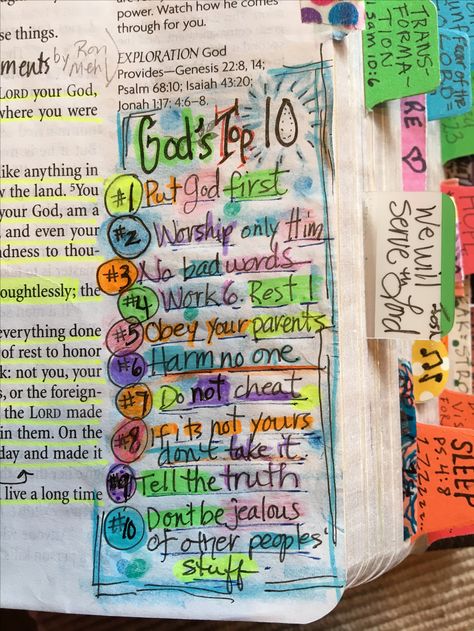 power. Watch how he comes
through for you.
se things.
EXPLORATION God
Provides—Genesis 22:8, 14;
Psalm 68:10; Isaiah 43:20;
Jonah 1:17; 4:6–8.
ments
by Ron
Mehl
LORD your God,
where you were
like anything in
w the land. 5You
your God, am a
and even your
dness to thou-
oughtlessly; the
everything done
of rest to honor
k: not you, your
s, or the foreign-
the LORD made
in them. On the
day and made it
live a long time
God's Top 10
#1 Put God first
#2 Worship only Him
#3 No bad words
#4 Work 6. Rest 1
#5 Obey your parents
#6 Harm no one
#7 Do not cheat
#8 If it's not yours
don't take it.
#9 Tell the truth
#10 Don't be jealous
of other peoples'
stuff
TRANS-
FORMA-
TION
1 Sam 10:6
fear of the
LORD=
RE
We will
serve the
Lord
SLEEP
PS. 4:8